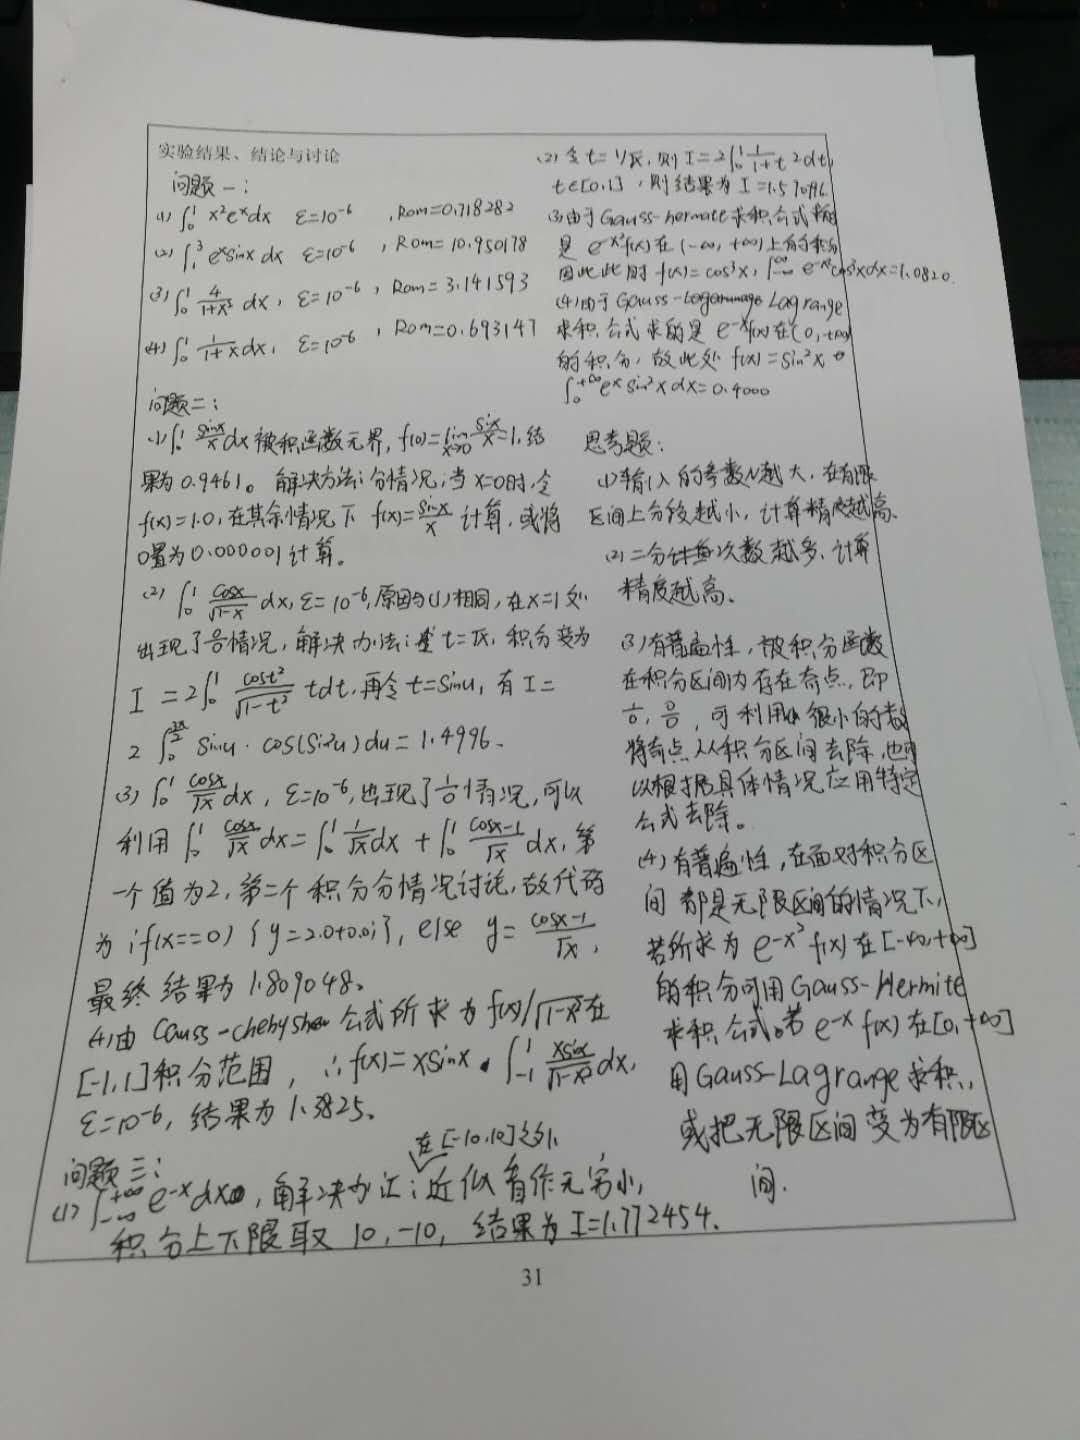 实验结果、结论与讨论
问题一:
(1) ∫₀¹ x²eˣdx ε=10⁻⁶ , Rom=0.718282
(2) ∫₁³ eˣsinx dx ε=10⁻⁶ , Rom=10.950178
(3) ∫₀¹ 4/(1+x²) dx, ε=10⁻⁶, Rom=3.141593
(4) ∫₀¹ 1/(1+x) dx, ε=10⁻⁶ , Rom=0.693147
问题二:
(1) ∫₀¹ sinx/x dx 被积函数无界, f(0)=lim x→0 sinx/x=1, 结
果为0.9461。解决方法:分情况;当x=0时,令
f(x)=1.0,在其余情况下 f(x)=sinx/x 计算,或将
0置为0.000001计算。
(2) ∫₀¹ cosx/√(1-x) dx, ε=10⁻⁶,原因与(1)相同,在x=1处
出现了 情况,解决办法: t=√x, 积分变为
I = 2∫₀¹ cost²/√(1-t²) tdt,再令t=sinu,有I=
2 ∫₀ sinu·cos(sin²u)du=1.4996.
(3) ∫₀¹ cosx/√x dx, ε=10⁻⁶,出现了 情况,可以
利用 ∫₀¹ cosx/√x dx=∫₀¹ 1/√x dx + ∫₀¹ (cosx-1)/√x dx,第
一个值为2,第二个积分分情况讨论,故代码
为 if(x==0) {y=2.0+0.0;}, else y=(cosx-1)/√x,
最终结果为1.809048。
(4)由 Gauss-chebyshev 公式所求为f(x)/√(1-x²)在
[-1,1]积分范围, ∴f(x)=xsinx. ∫₋₁¹ xsinx/√(1-x²) dx,
ε=10⁻⁶, 结果为1.3825。
问题三:
(1) ∫₋∞⁺∞ e⁻ˣdx,解决办法:在[-10,10]之外近似看作无穷小,
积分上下限取 10,-10, 结果为I=1.772454.
(2) 令t=1/√x,则I=2∫₀¹ 1/(1+t²) dt,
t∈[0,1] ,则结果为I=1.57096
(3)由于Gauss-hermate求积公式求的
是 e^(-x²)f(x)在(-∞,+∞)上的积分
因此此时 f(x)=cos³x, ∫₋∞^∞ e^(-x²)cos³xdx=1.0820.
(4)由于Gauss-Lagrange
求积公式求的是 e⁻ˣf(x)在(0,+∞)
的积分,故此处 f(x)=sin²x
∫₀^+∞ eˣsin²xdx=0.4000
思考题:
(1)输入的参数N越大,在有限
区间上分段越小,计算精度越高、
(2)二分 次数越多、计算
精度越高、
(3)有普遍性,被积分函数
在积分区间内存在奇点,即
可利用 很小的数
将奇点从积分区间去除,也可
以根据具体情况应用特定
公式去除。
(4)有普遍性,在面对积分区
间都是无限区间的情况下,
若所求为 e^(-x²)f(x)在[-∞,+∞]
的积分可用Gauss-Hermite
求积公式。若 e^(-x)f(x)在[0,+∞]
用Gauss-Lagrange求积,
或把无限区间变为有限区
间.
31